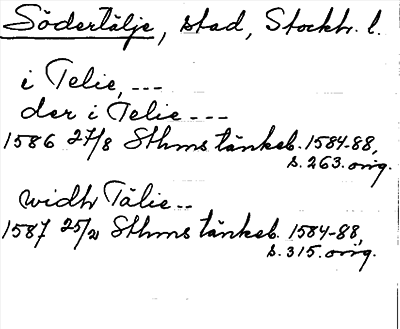 Södertälje, stad, Stockh. l.
i Telie, ---
der i Telie ---
1586 27/8 Sthms tänkeb. 1584-88,
s. 263. orig.
widh Tälie --
1587 25/2 Sthms tänkeb. 1584-88,
s. 315. orig.